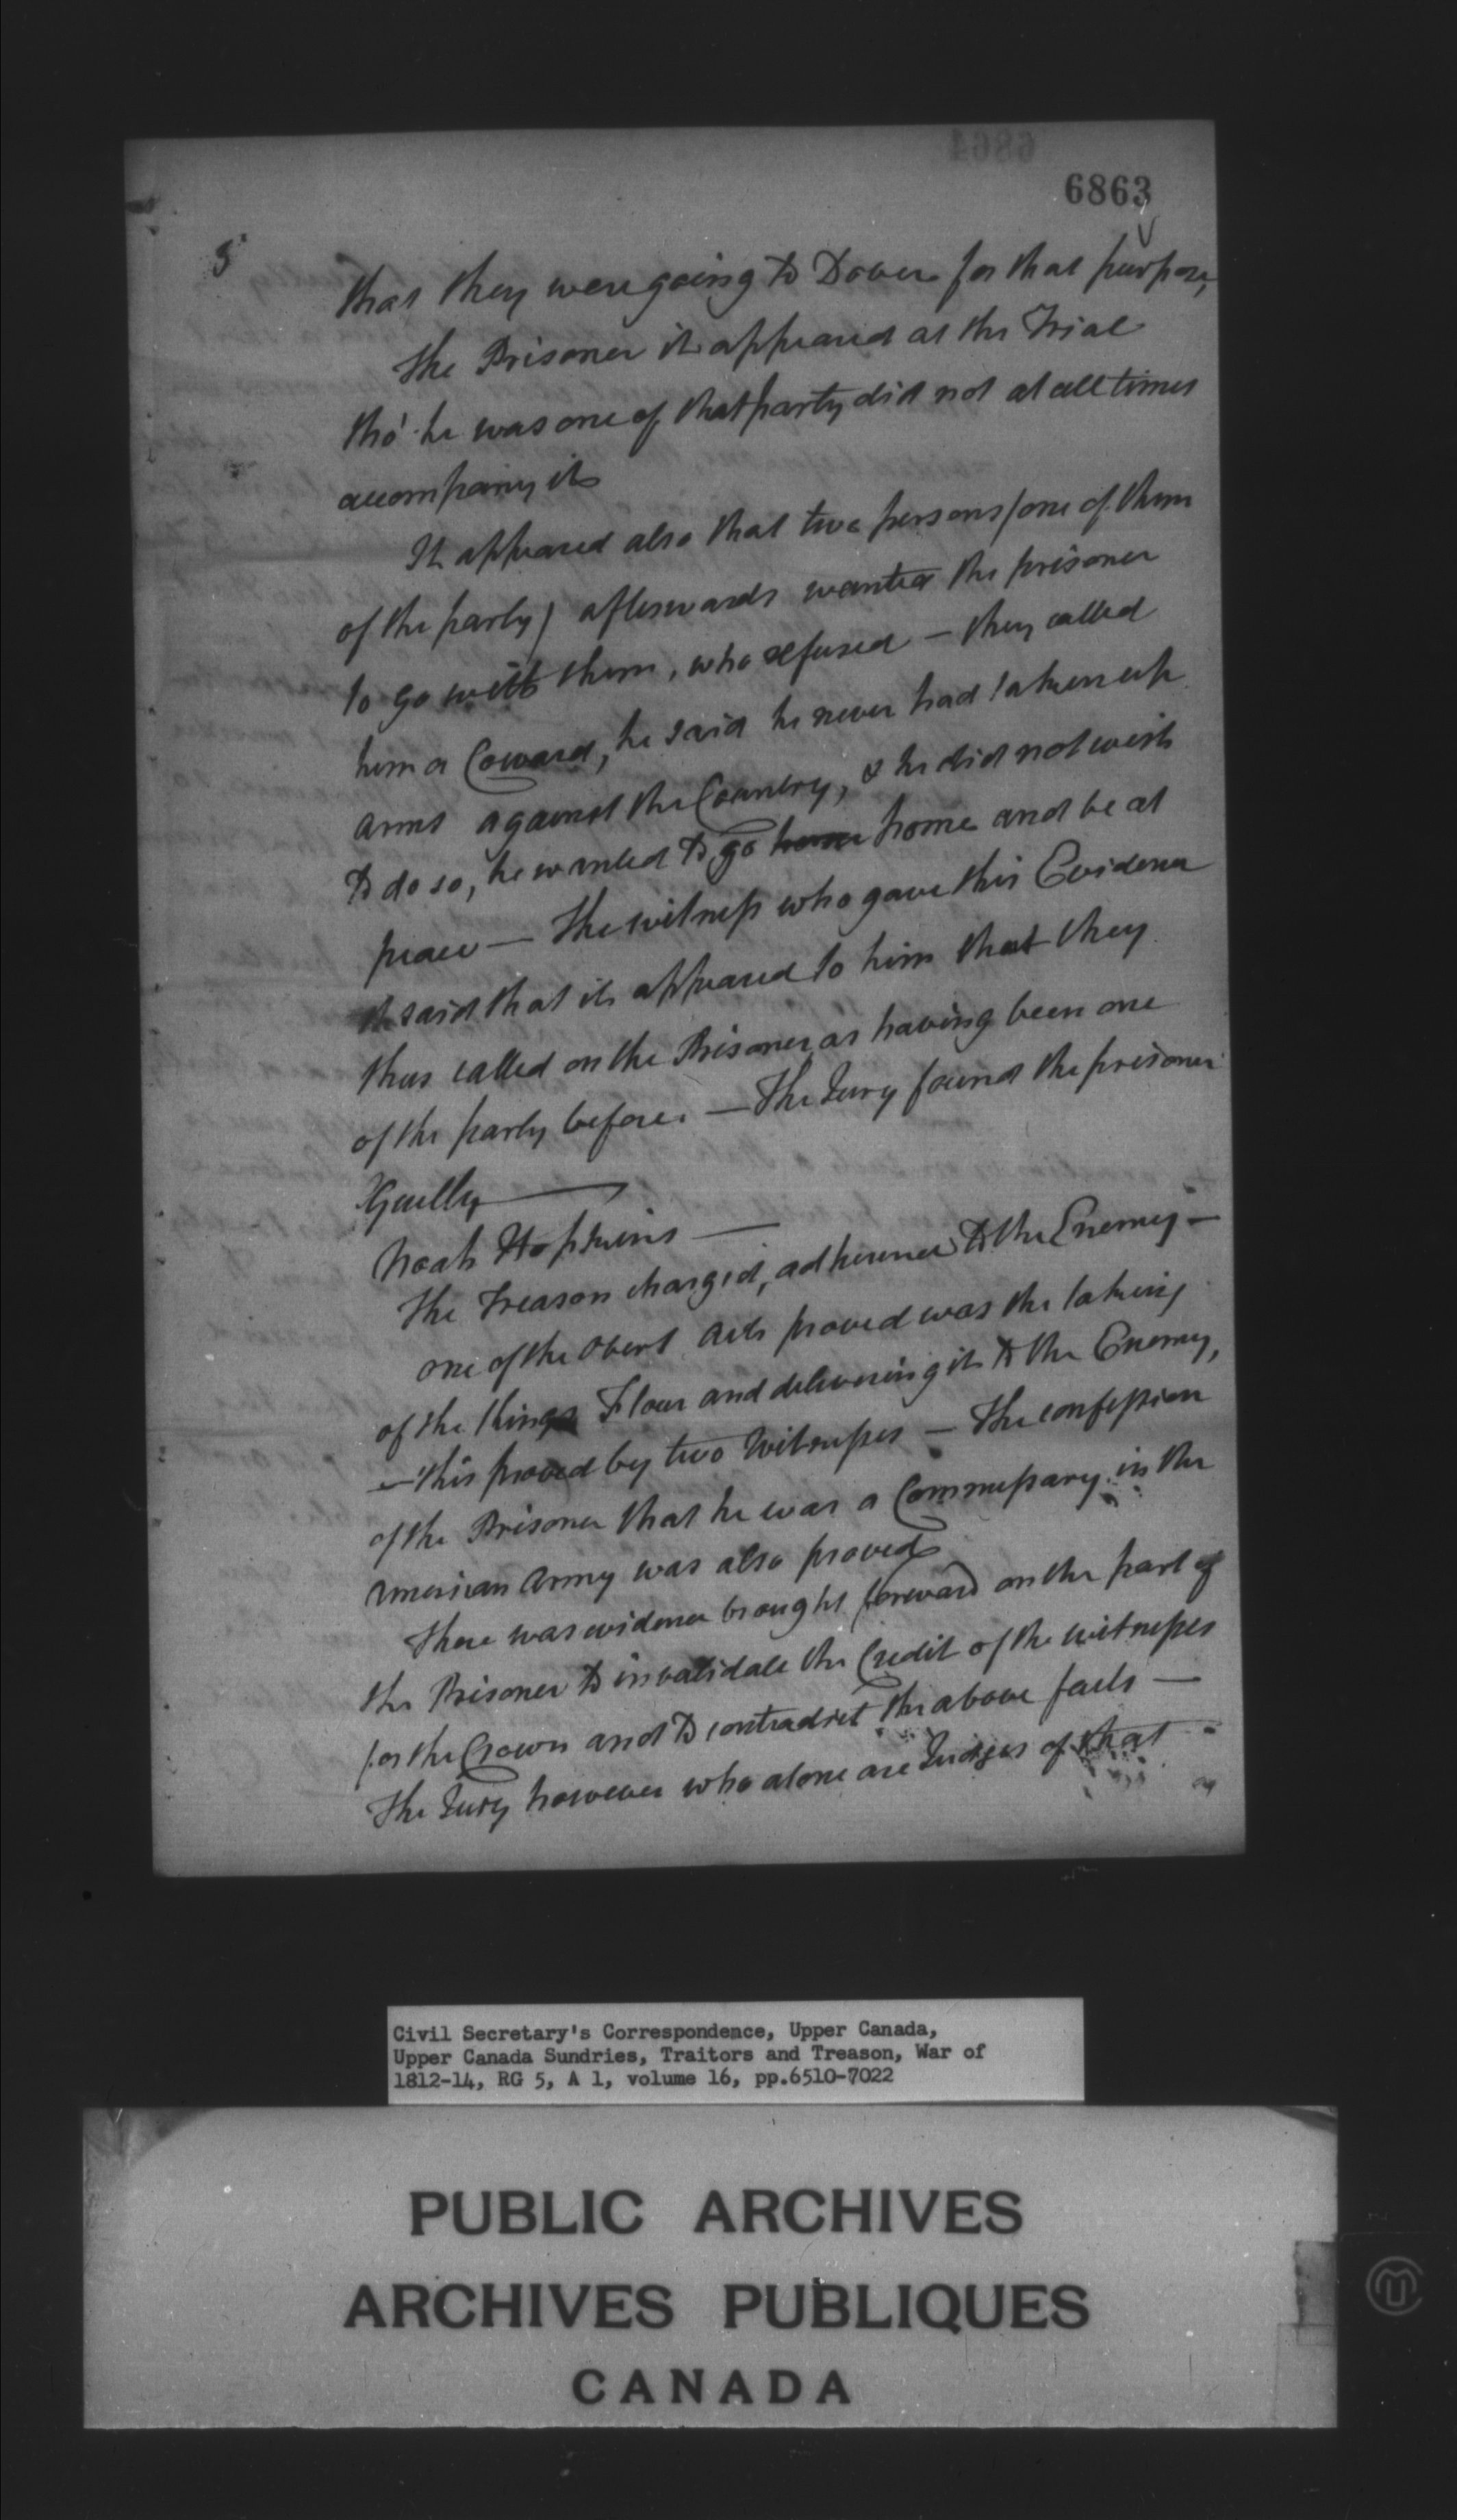 6863
5
that they were going to Dover for that purpose,
The Prisoner it appeared at the Trial
tho' he was one of that party did not at all times
accompany it
It appeared also that two persons (one of them
of the party) afterwards wanted the prisoner
to go with them, who refused — they called
him a Coward, he said he never had taken up
arms against the Country, & he did not wish
to do so, he wanted to go home home and be at
peace — The witness who gave this Evidence
said that it appeared to him that they
thus called on the Prisoner as having been one
of the party before. — The Jury found the prisoner
Guilty —
Noah Hopkins —
The Treason charged, adherence to the Enemy —
one of the overt acts proved was the taking
of the kings Flour and delivering it to the Enemy,
— this proved by two Witnesses — The confession
of the Prisoner that he was a Commissary in the
American Army was also proved
There was evidence brought forward on the part of
the Prisoner to invalidate the Credit of the witnesses
for the Crown and to contradict the above facts —
The Jury however who alone are Judges of that
Civil Secretary's Correspondence, Upper Canada,
Upper Canada Sundries, Traitors and Treason, War of
1812-14, RG 5, A 1, volume 16, pp.6510-7022
PUBLIC ARCHIVES
ARCHIVES PUBLIQUES
CANADA